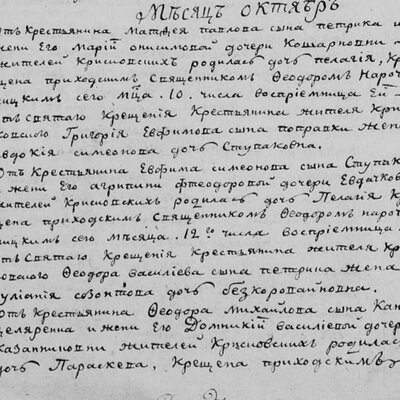 Мѣсяцъ октябрь
Отъ Крестьянина Матфея павлова сына петрика и
жены Его Маріи онисимовой дочери
жителей родилась дочь пелагія, кр
щена приходскимъ Священникомъ Феодоромъ Нароч
ницкимъ сего мца. 10. числа воспріемница Ей
отъ святаго крещенія Крестьянина жителя Кри
Григорія Евфимова сына поправки жена
евдокія симеонова дочь Ступаковна.
Отъ Крестьянина Евфима симеонова сына Ступак
жены Его агрипины фтеодоровой дочери
жителей родилась дочь Пелагія к
щена приходскимъ Священникомъ Феодоромъ нароч
ницкимъ сего мѣсяца. 12го числа воспріемница
отъ Святаго Крещенія Крестьянина жителя кр
Феодора василіева сына петрика жена
уліанія созонтова дочь безкоровайновна.
Отъ Крестьянина Феодора Михайлова сына Кан
целяренка и жены Его Домникіи василіевой дочер
жителей родилась
дочь Параскева, крещена приходскимъ